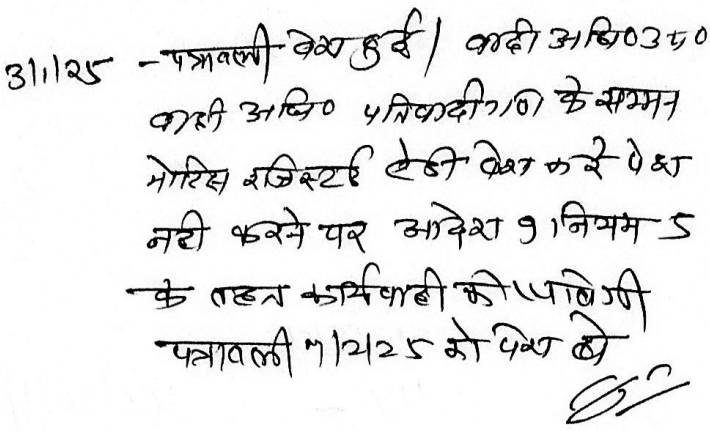 31/1/25 - पत्रावली पेश हुई। वादी अधि0 उप0
वादी अधि0 प्रतिवादीगण के सम्मन
नोटिस रजिस्टर्ड ऐडी पेश करे पेश
नही करने पर आदेश 9 नियम 5
के तहत कार्यवाही की जावेगी
पत्रावली 7/2/25 को पेश हो